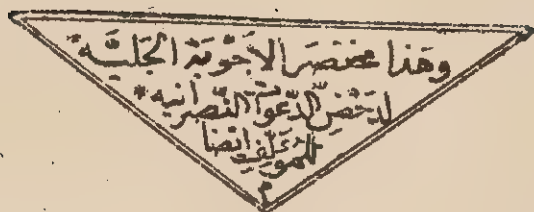 وهَذا مختصَر الاَجْوبَة الجَليَّة
لدَحْضِ الدَّعوَات النّصرانيه *
للمؤَلّف ايضا
م